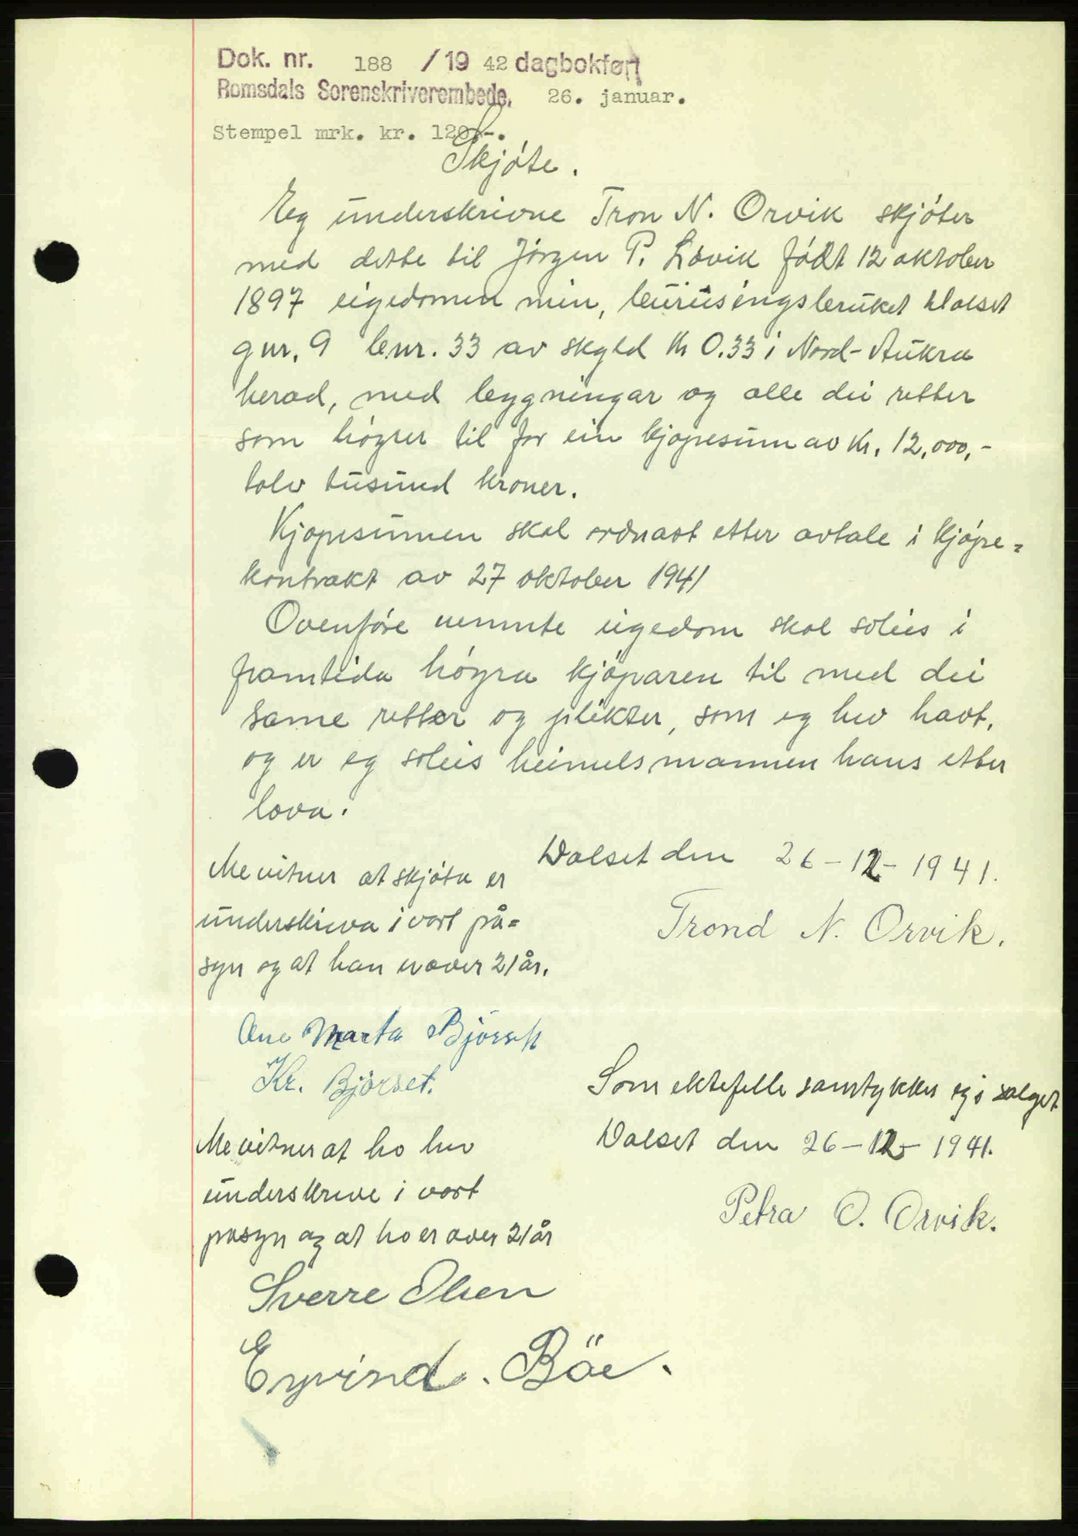 Dok. nr. 188 /19 42 dagbokført
Romsdals Sorenskriverembede, 26. januar.
Stempel mrk. kr. 120,-.
Skjóte.
Eg underskrivne Tron N. Orvik skjóter
med dette til Jórgen P. Løvik født 12 oktober
1897 eigedomen min, bureisingsbruket Dalset
gnr. 9 bnr. 33 av skyld Kr 0.33 i Nord-Aukra
herad, med bygningar og alle dei retter
som hóyrer til for ein kjøpesum av Kr. 12,000,-
tolv tusund kroner.
Kjøpesummen skal ordnast etter avtale i kjópe=
kontrakt av 27 oktober 1941
Ovenfóre nemnte eigedom skal soleis i
framtida hóyra kjóparen til med dei
same retter og plikter, som eg hev havt,
og er eg soleis heimelsmannen hans etter
lova.
Dalset den 26-12-1941.
Trond N. Orvik.
Me vitner at skjóta er
underskreva i vort på=
syn og at han er over 21 år.
Ane Marta Bjórset
Kr. Bjórset.
Som ektefelle samtykker eg i salget
Dalset den 26-12-1941.
Petra O. Orvik.
Me vitner at ho hev
underskreve i vort
påsyn og at ho er over 21 år
Sverre Olsen
Eyvind. Böe.